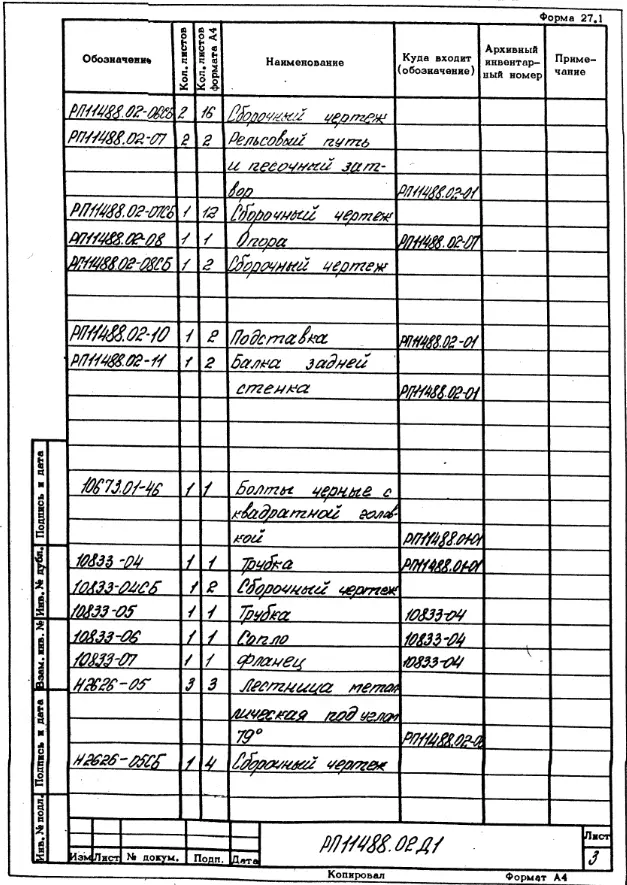 Форма 27.1
Обозначение Кол. листов Кол. листов формата А4 Наименование Куда входит (обозначение) Архивный инвентарный номер Примечание
РП11488.02-06СБ 2 16 Сборочный чертеж
РП11488.02-07 2 2 Рельсовый путь
и песочный зат-
вор РП11488.02-01
РП11488.02-07СБ 1 12 Сборочный чертеж
РП11488.02-08 1 1 Опора РП11488.02-07
РП11488.02-08СБ 1 2 Сборочный чертеж
РП11488.02-10 1 2 Подставка РП11488.02-01
РП11488.02-11 1 2 Балка задней
стенка РП11488.02-01
10673.01-46 1 1 Болты черные с
квадратной голов
кой РП11488.01-01
10833-04 1 1 Трубка РП11488.01-01
10833-04СБ 1 2 Сборочный чертеж
10833-05 1 1 Трубка 10833-04
10833-06 1 1 Сопло 10833-04
10833-07 1 1 Фланец 10833-04
Н2626-05 3 3 Лестница метал
лическая под углом
79° РП11488.02-0
Н2626-05СБ 1 4 Сборочный чертеж
Инв. № подл. Подпись и дата Взам. инв. № Инв. № дубл. Подпись и дата
РП11488.02Д1
Лист
3
Изм Лист № докум. Подп. Дата
Копировал Формат А4